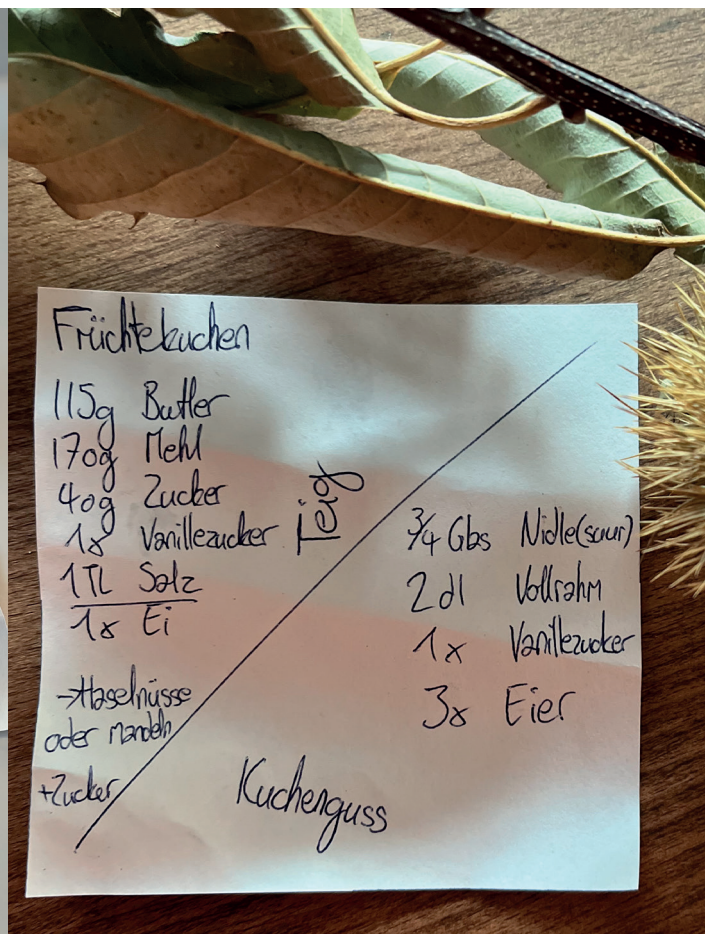 Früchtekuchen
115g Butter
170g Mehl
40g Zucker
1x Vanillezucker
1TL Salz
1x Ei
Teig
→Haselnüsse
oder Mandeln
+Zucker
3/4 Gbs Nidle(saur)
2dl Vollrahm
1x Vanillezucker
3x Eier
Kuchenguss